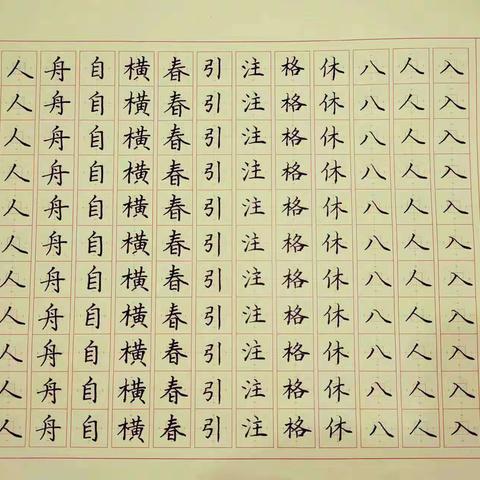 人舟自横春引注格休八人入
人舟自横春引注格休八人入
人舟自横春引注格休八人入
人舟自横春引注格休八人入
人舟自横春引注格休八人入
人舟自横春引注格休八人入
人舟自横春引注格休八人入
人舟自横春引注格休八人入
人舟自横春引注格休八人入
人舟自横春引注格休八人入
人舟自横春引注格休八人入